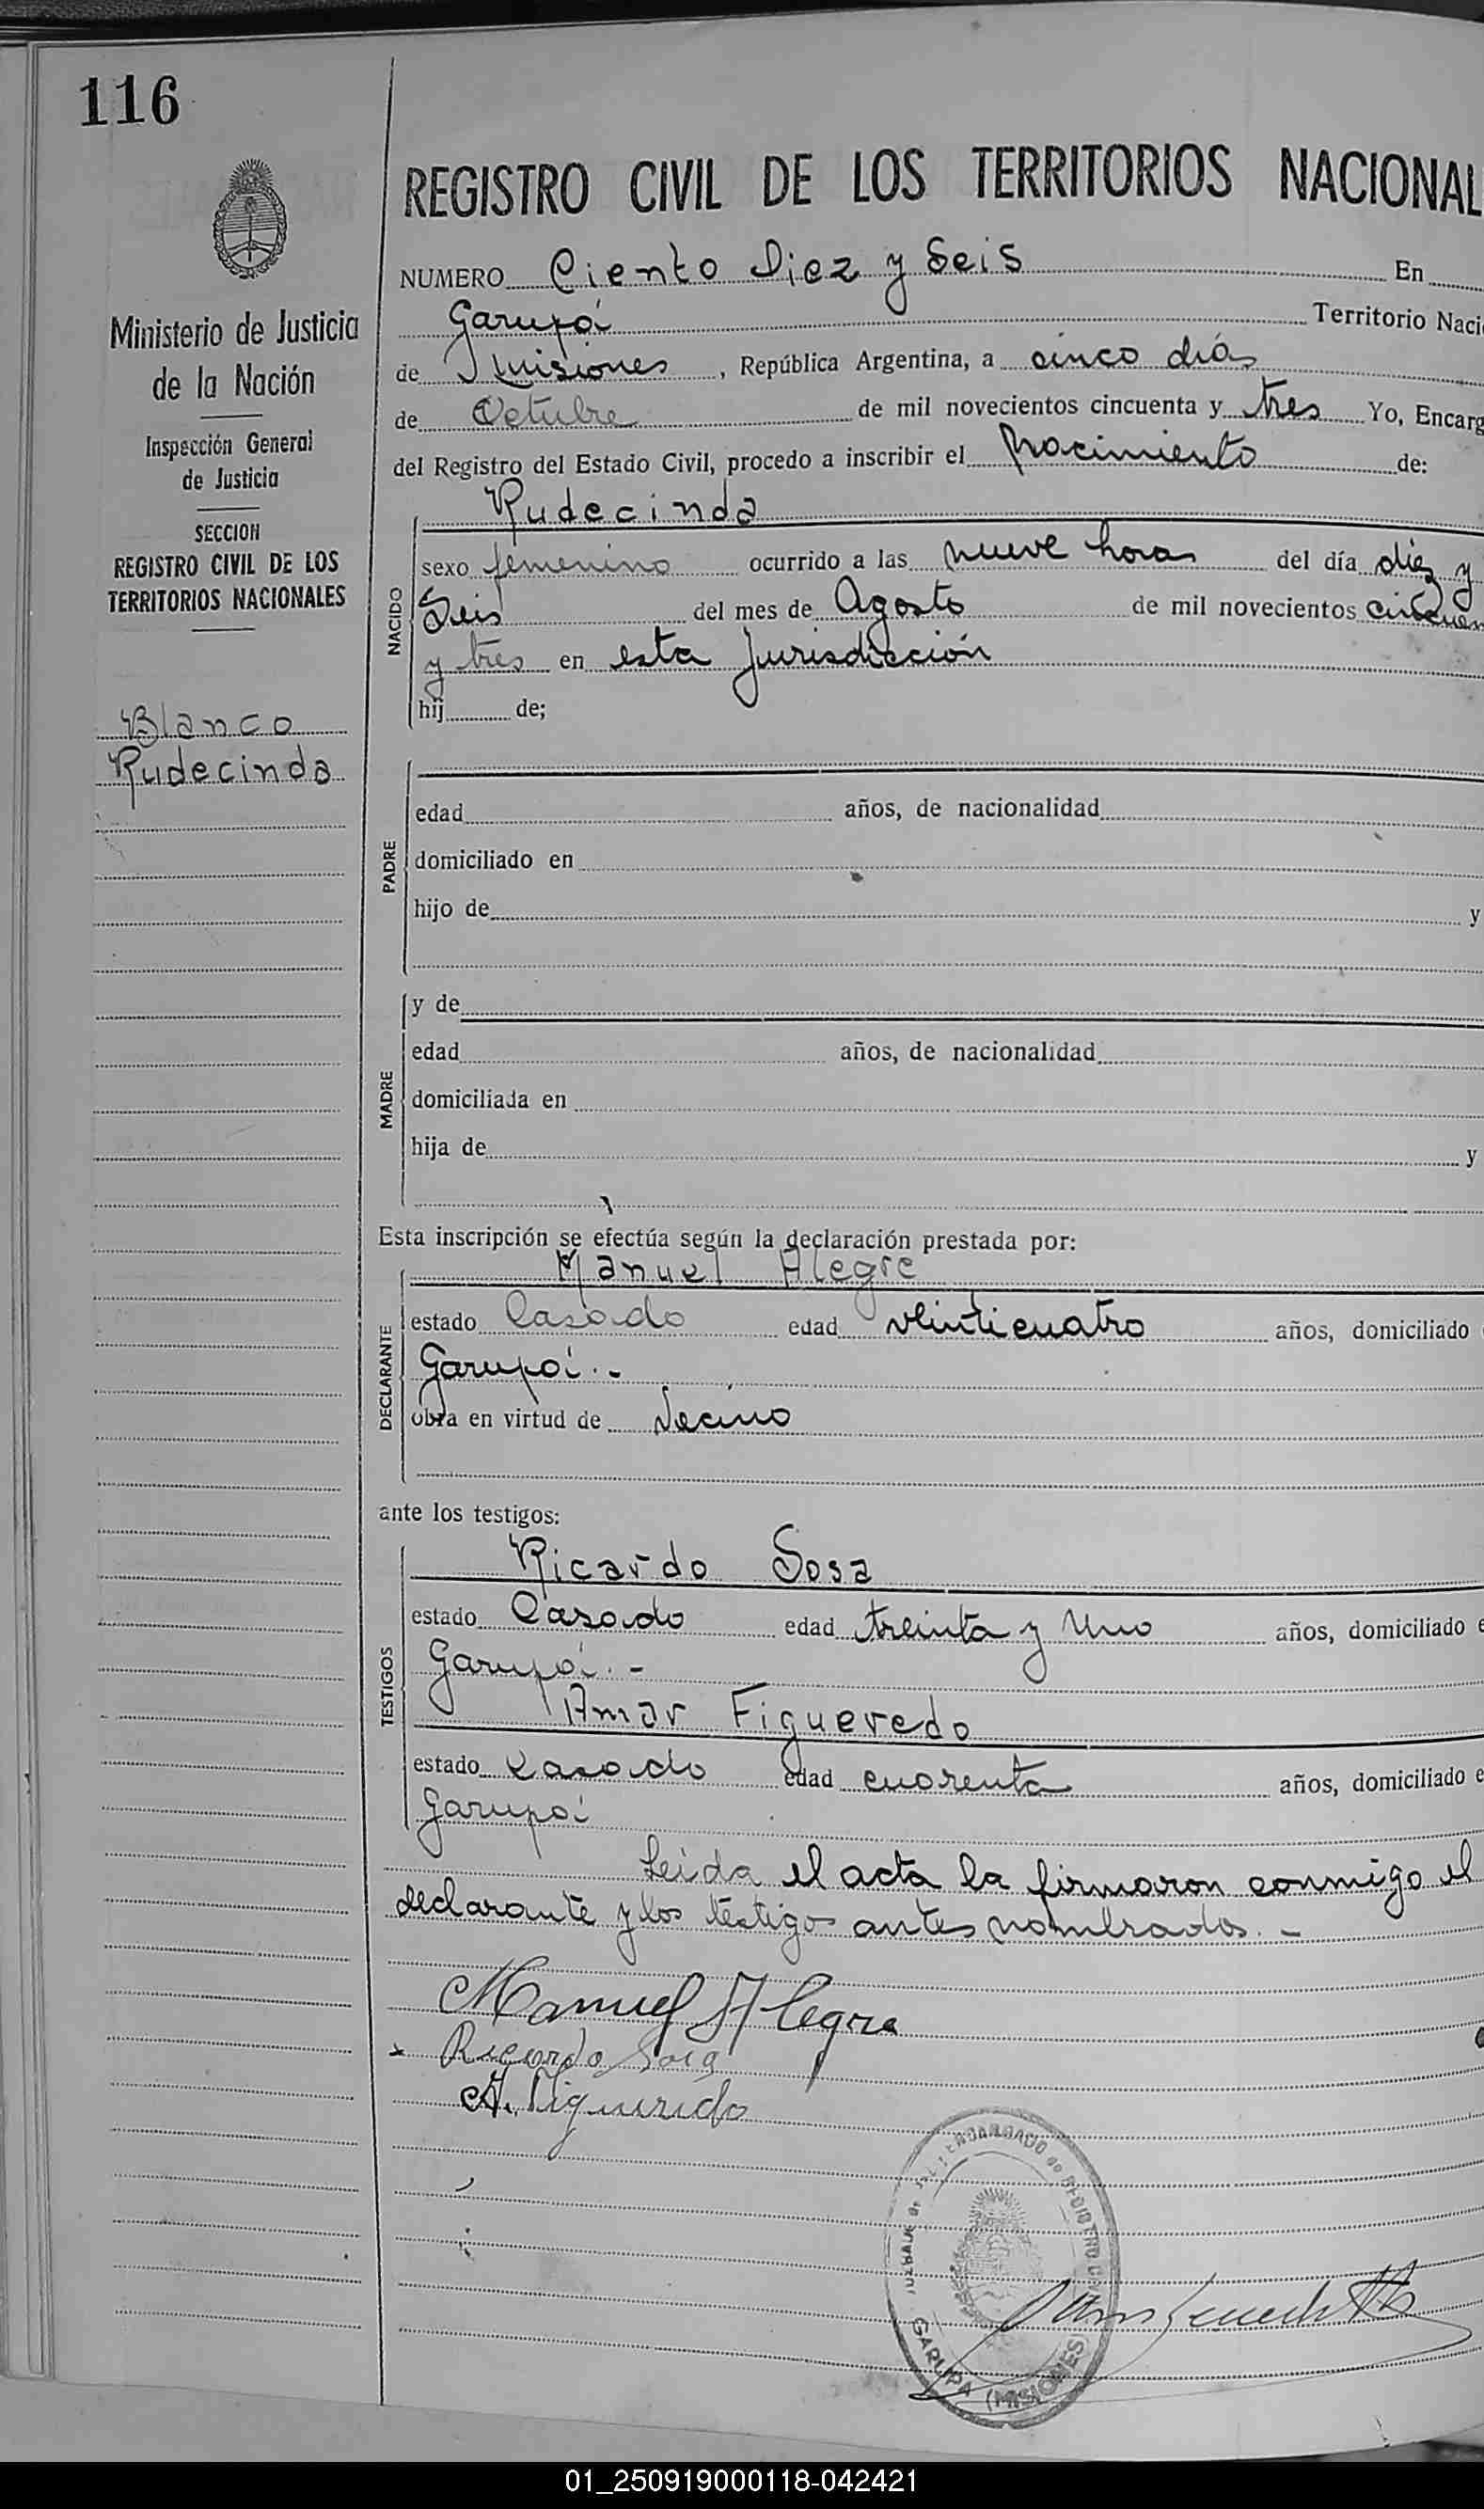 116
REGISTRO CIVIL DE LOS TERRITORIOS NACIONAL
NUMERO Ciento Diez y Seis En
Garupá Territorio Naci
de Misiones, República Argentina, a cinco días
de Octubre de mil novecientos cincuenta y tres Yo, Encarg
del Registro del Estado Civil, procedo a inscribir el nacimiento de:
Ministerio de Justicia
de la Nación
Inspección General
de Justicia
SECCION
REGISTRO CIVIL DE LOS
TERRITORIOS NACIONALES
Blanco
Rudecinda
NACIDO
Rudecinda
sexo femenino ocurrido a las nueve horas del día diez y
Seis del mes de Agosto de mil novecientos cincuen
y tres en esta Jurisdicción
hij de;
PADRE
edad años, de nacionalidad
domiciliado en
hijo de y
MADRE
y de
edad años, de nacionalidad
domiciliada en
hija de y
Esta inscripción se efectúa según la declaración prestada por:
DECLARANTE
Manuel Alegre
estado Casado edad veinticuatro años, domiciliado
Garupá.-
obra en virtud de Vecino
ante los testigos:
TESTIGOS
Ricardo Sosa
estado Casado edad treinta y Uno años, domiciliado e
Garupá.-
Amar Figueredo
estado Casado edad cuarenta años, domiciliado e
Garupá
Leida el acta la firmaron conmigo el
declarante y los testigos antes nombrados.-
Manuel Alegre
x Ricardo Sosa
A. Figueredo
ENCARGADO de REGISTRO CIVIL
GARUPA (MISIONES)
01_250919000118-042421